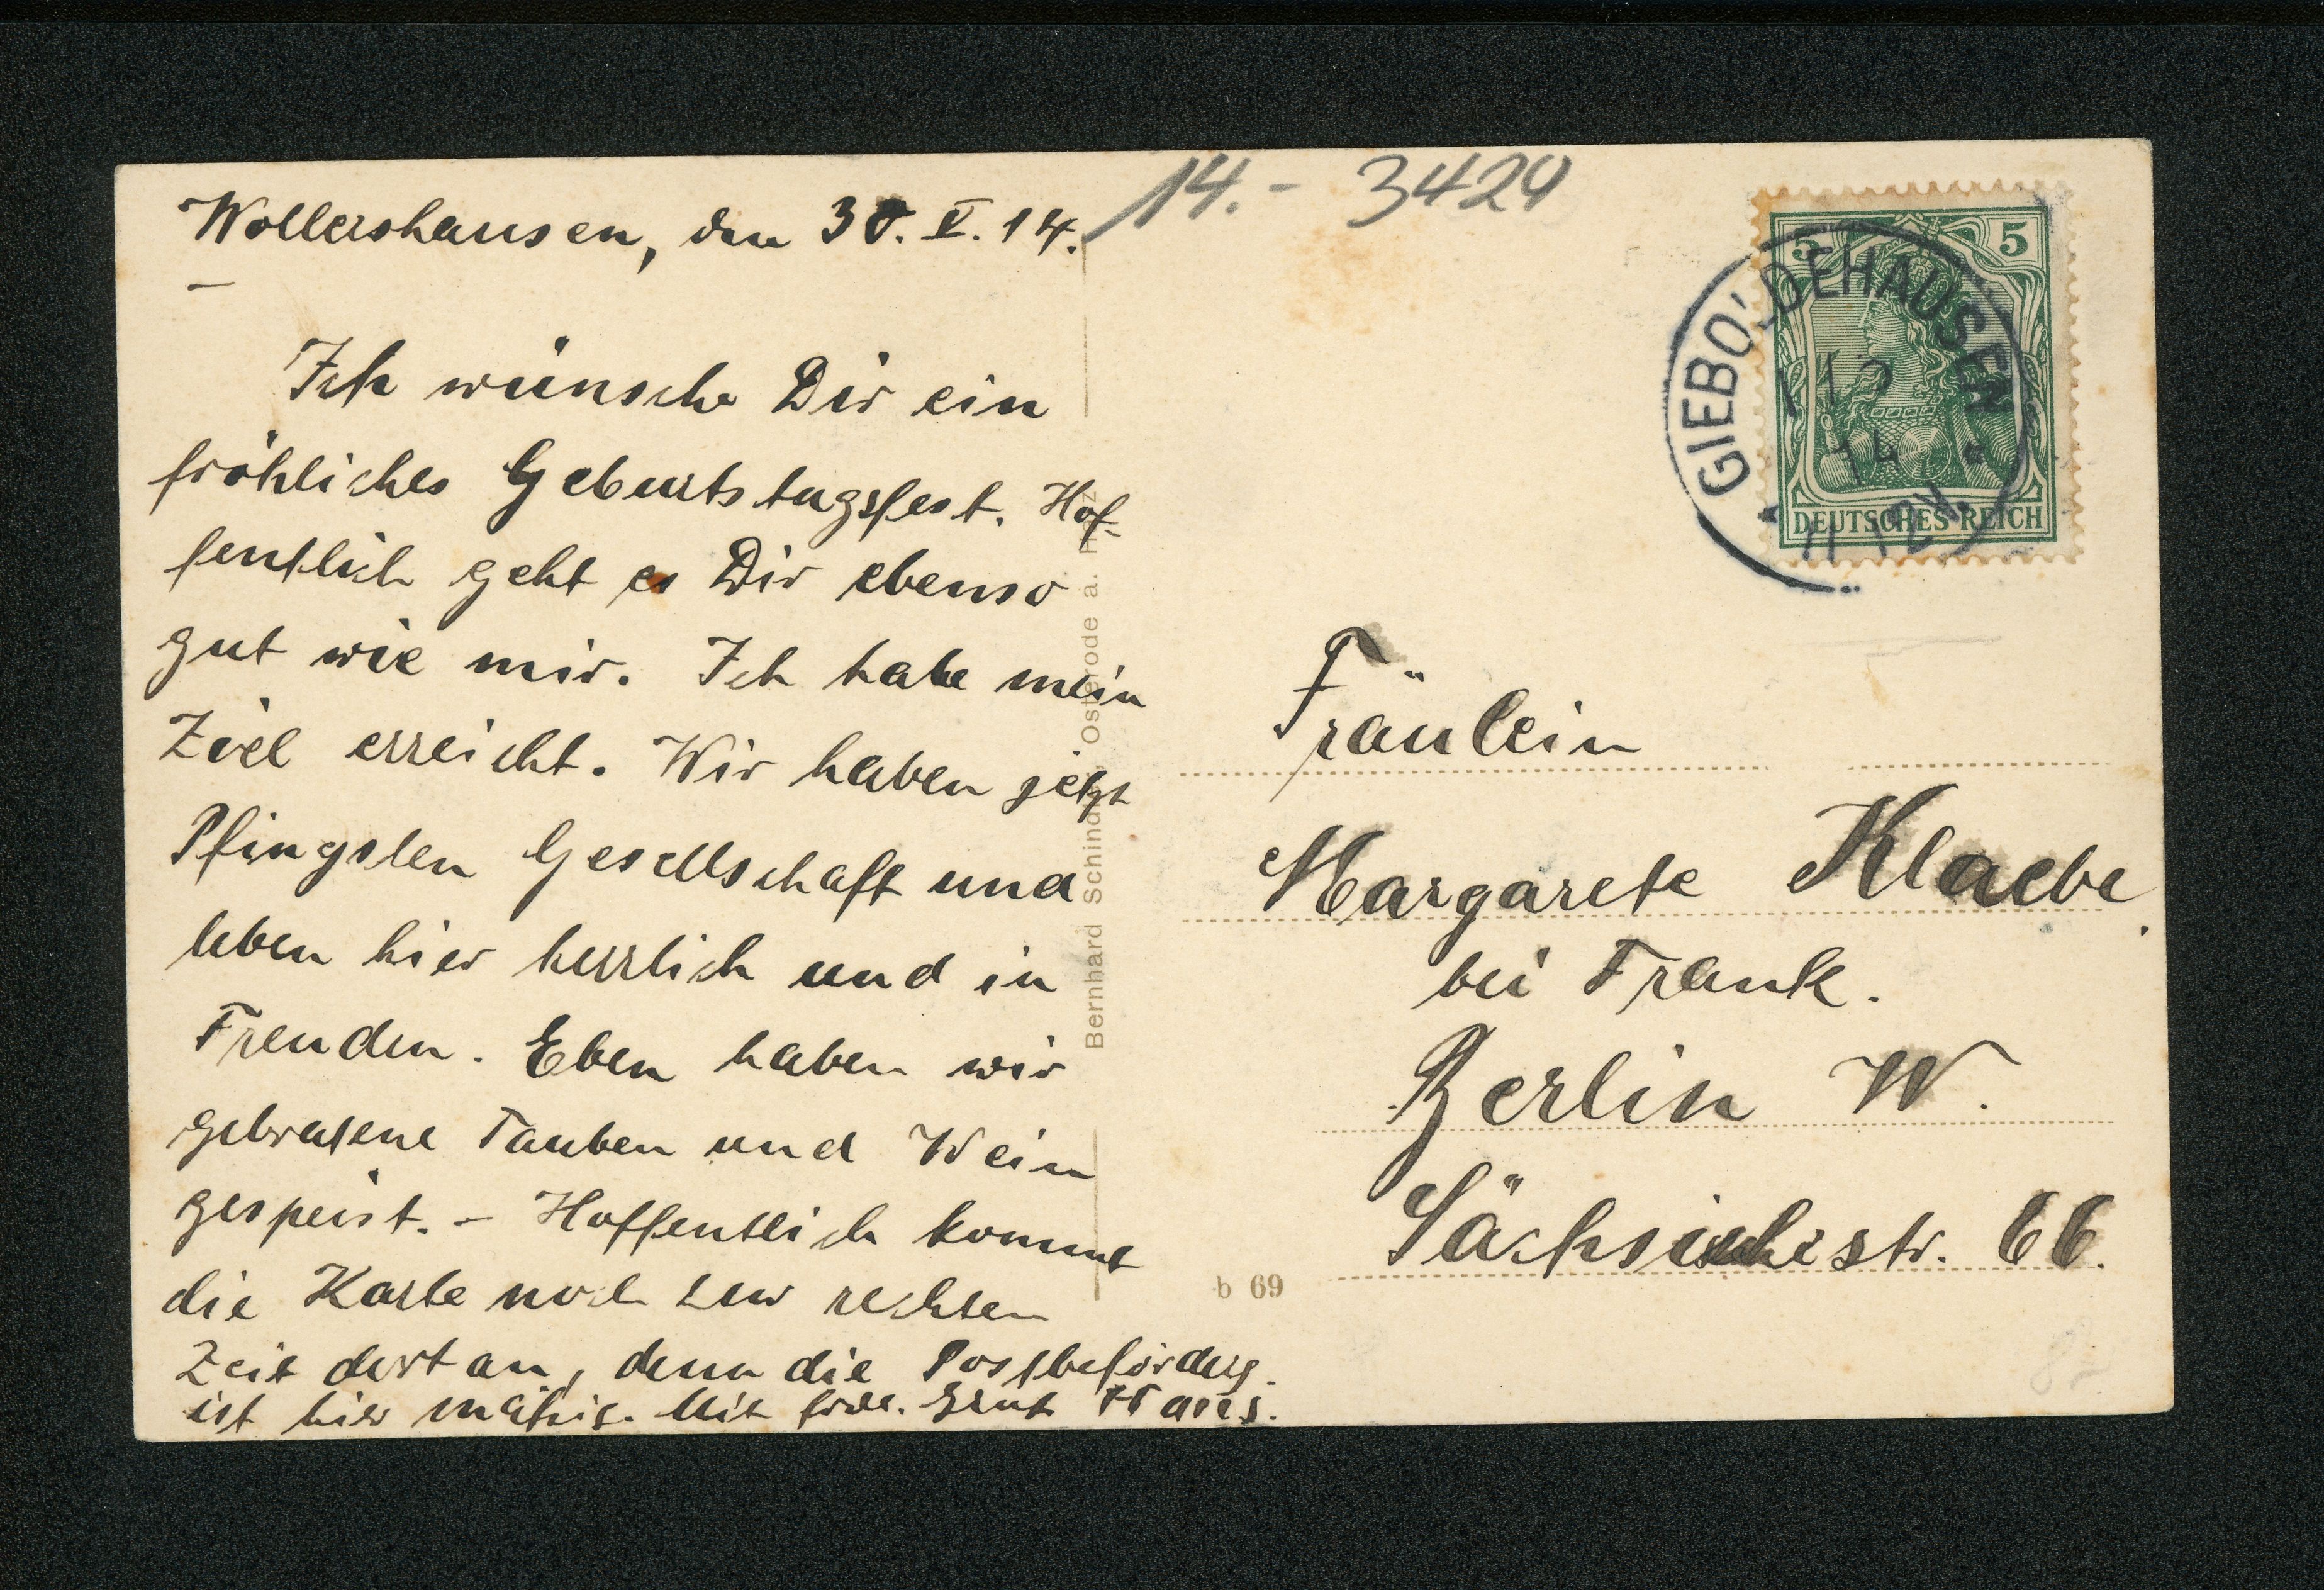 14.- 3429
Wollershausen, den 30. V. 14.
Ich wünsche Dir ein
fröhliches Geburtstagsfest. Hof-
fentlich geht es Dir ebenso
gut wie mir. Ich habe mein
Ziel erreicht. Wir haben jetzt
Pfingsten Gesellschaft und
leben hier herrlich und in
Freuden. Eben haben wir
gebratene Tauben und Wein
gespeist. - Hoffentlich kommt
die Karte noch zur rechten
Zeit dort an, denn die Postbeförderg.
ist hier mäßig. Mit frdl. Gruß Hans.
Bernhard Schind Osterode a. Harz
5 5
DEUTSCHES REICH
GIEBOLDEHAUSEN
14
Fräulein
Margarete Klaebe.
bei Frank.
Berlin W.
Sächsischestr. 66.
b 69